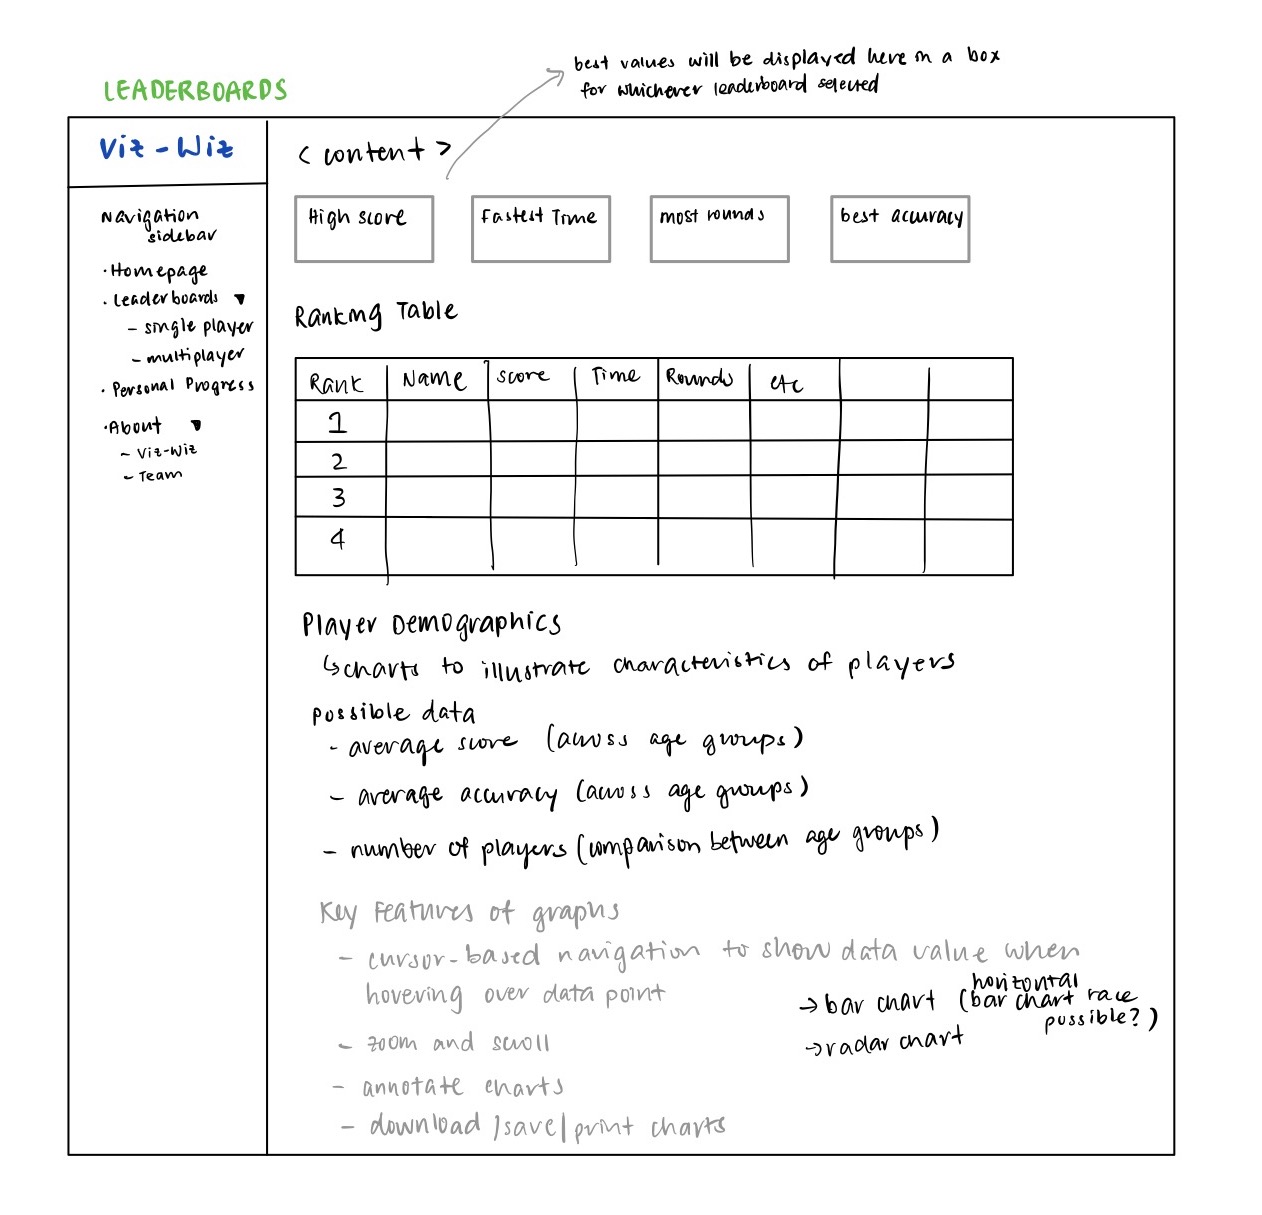 best values will be displayed here in a box
for whichever leaderboard selected
LEADERBOARDS
Viz-Wiz
Navigation
sidebar
· Homepage
· Leaderboards ▼
- single player
- multiplayer
· Personal Progress
· About ▼
- Viz-Wiz
- Team
< content >
High score
Fastest Time
most rounds
best accuracy
Ranking Table
Rank Name score Time Rounds etc
1
2
3
4
Player Demographics
↳ charts to illustrate characteristics of players
possible data
- average score (across age groups)
- average accuracy (across age groups)
- number of players (comparison between age groups)
Key Features of graphs
- cursor-based navigation to show data value when
hovering over data point
- zoom and scroll
- annotate charts
- download /save/ print charts
horizontal
→ bar chart (bar chart race
possible?)
→ radar chart